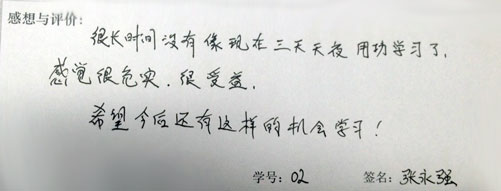 感想与评价:
很长时间没有像现在三天天夜用功学习了,
感觉很充实.很受益.
希望今后还有这样的机会学习!
学号: 02 签名: 张永强